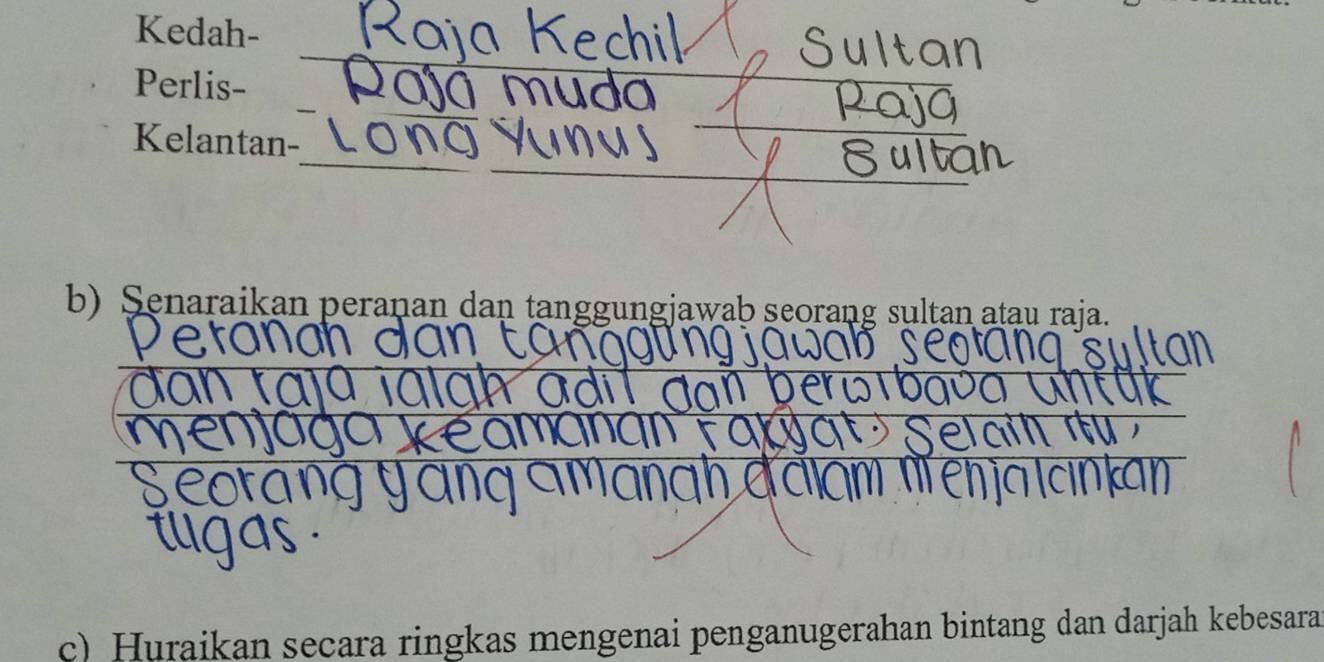 Kedah- Raja Kechil Sultan
Perlis- Raja muda Raja
Kelantan- Long Yunus Sultan
b) Senaraikan peranan dan tanggungjawab seorang sultan atau raja.
Peranan dan tanggungjawab seorang sultan
dan raja ialah adil dan berwibawa untuk
menjaga keamanan rakyat. Selain itu,
seorang yang amanah dalam menjalankan
tugas.
c) Huraikan secara ringkas mengenai penganugerahan bintang dan darjah kebesara